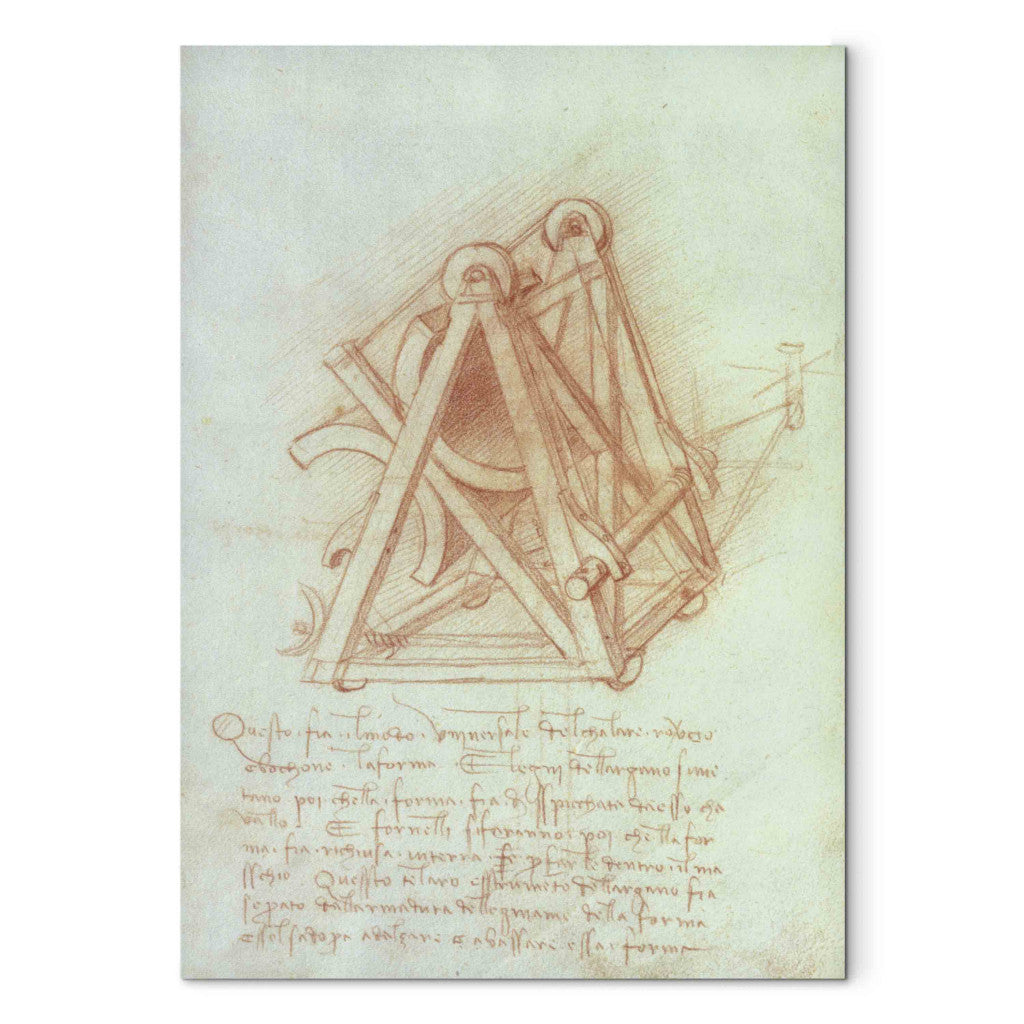 Questo fia ilmodo vniuersale delchalare rouescio
e bochone laforma E legni dellargano si me
tano poi chella forma fia disspicchata daesso cha
vallo E fornelli sifaranno poi che lla for
ma fia richiusa interra e dentro il ma
sschio Quessto telaro esstrumeto dellargano fia
separato dallarmadura dellegniame della forma
essol adalzare e abassare essa forma